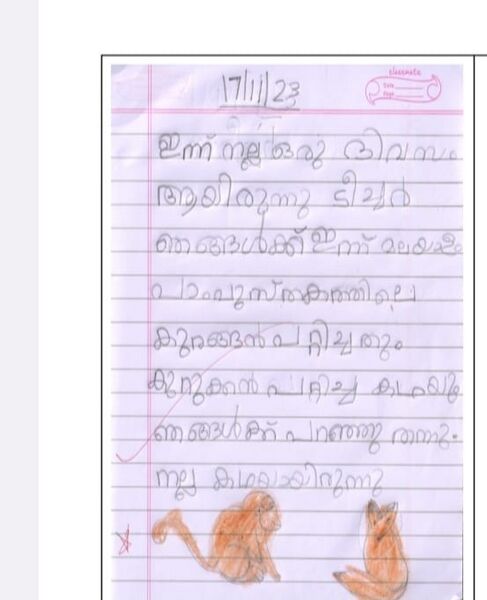 17/11/23
classmate
Date
Page
ഇന്ന് നല്ല ഒരു ദിവസം
ആയിരുന്നു ടീച്ചർ
ഞങ്ങൾക്ക് ഇന്ന് മലയാളം
പാഠപുസ്തകത്തിലെ
കുരങ്ങൻ പറ്റിച്ചതും
കുറുക്കൻ പറ്റിച്ച കഥയും
ഞങ്ങൾക്ക് പറഞ്ഞു തന്നു.
നല്ല കഥയായിരുന്നു